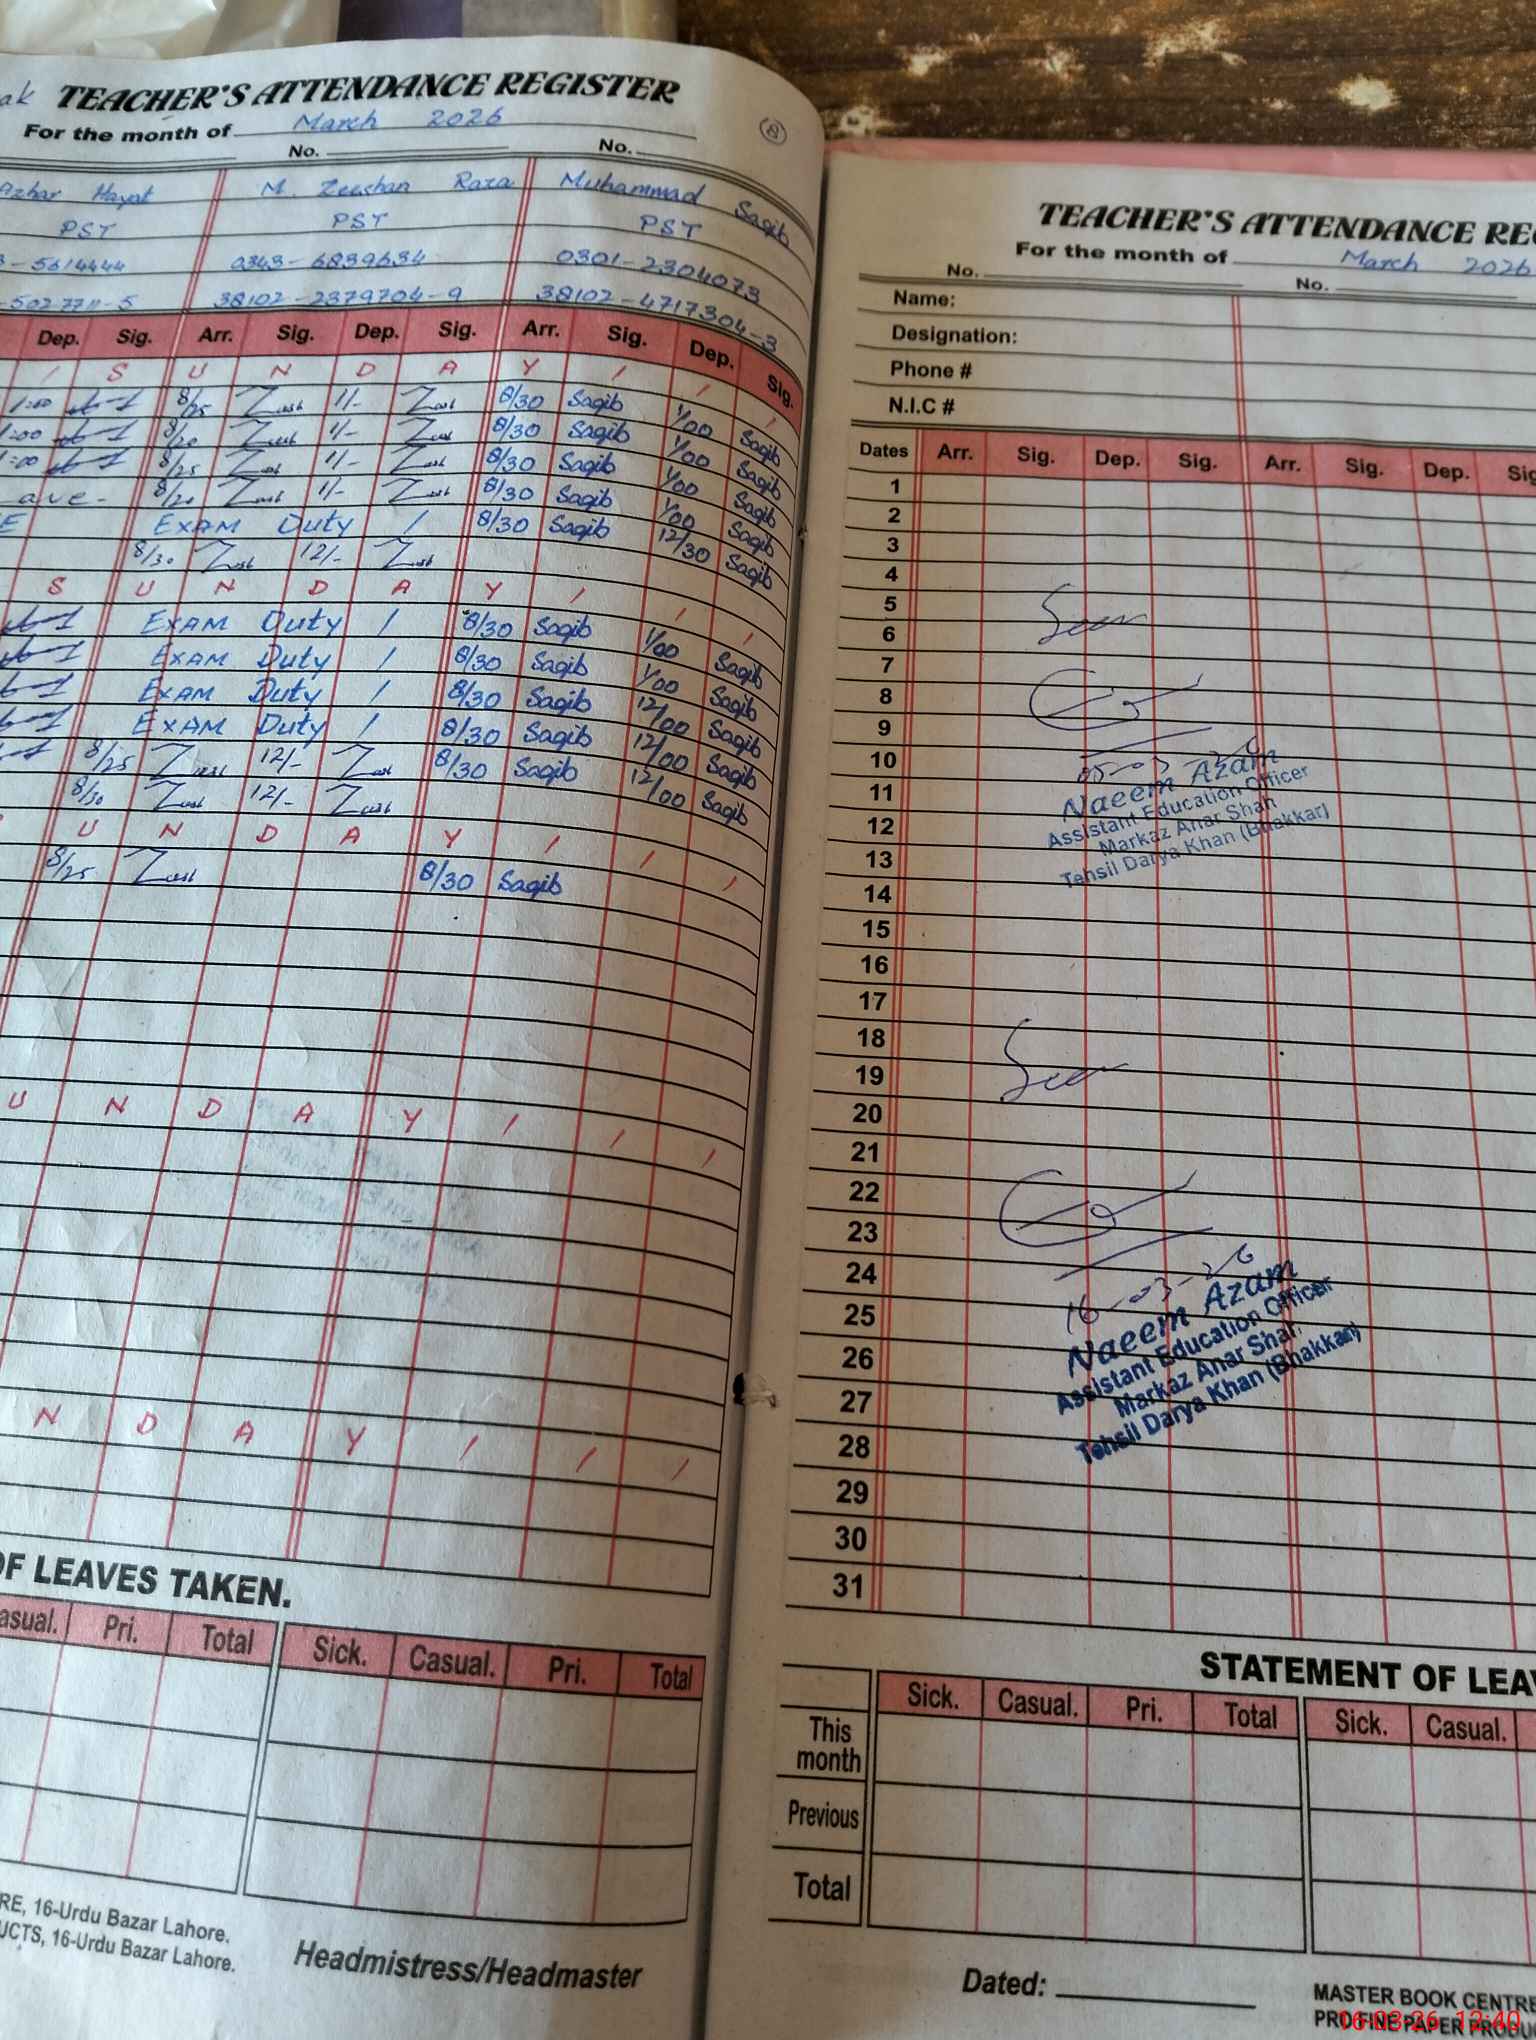 ak TEACHER'S ATTENDANCE REGISTER
For the month of March 2026
8
No. No.
Azhar Hayat M. Zeeshan Raza Muhammad Saqib
PST PST PST
3-5614444 0343-6839634 0301-2304073
-5027711-5 38102-2379704-9 38102-4717304-3
Dep. Sig. Arr. Sig. Dep. Sig. Arr. Sig. Dep. Sig.
/ S U N D A Y / / /
1:00 8/25 1/- 8/30 Saqib 1/00 Saqib
1:00 8/20 1/- 8/30 Saqib 1/00 Saqib
1:00 8/25 1/- 8/30 Saqib 1/00 Saqib
ave- 8/20 1/- 8/30 Saqib 1/00 Saqib
E EXAM Duty / 8/30 Saqib 12/30 Saqib
8/30 12/-
S U N D A Y / / /
EXAM Duty / 8/30 Saqib 1/00 Saqib
EXAM Duty / 8/30 Saqib 1/00 Saqib
EXAM Duty / 8/30 Saqib 12/00 Saqib
EXAM Duty / 8/30 Saqib 12/00 Saqib
8/25 12/- 8/30 Saqib 12/00 Saqib
8/30 12/-
U N D A Y / / /
8/25 8/30 Saqib
U N D A Y / / /
N D A Y / / /
OF LEAVES TAKEN.
asual. Pri. Total Sick. Casual. Pri. Total
RE, 16-Urdu Bazar Lahore.
UCTS, 16-Urdu Bazar Lahore.
Headmistress/Headmaster
TEACHER'S ATTENDANCE REG
For the month of March 2026
No. No.
Name:
Designation:
Phone #
N.I.C #
Dates Arr. Sig. Dep. Sig. Arr. Sig. Dep. Sig
1
2
3
4
5
6 Seen
7
8
9
10 05-03-26
11 Naeem Azam
12 Assistant Education Officer
13 Markaz Anar Shah
14 Tehsil Darya Khan (Bhakkar)
15
16
17
18
19 Seen
20
21
22
23
24
25 16-03-26
26 Naeem Azam
27 Assistant Education Officer
28 Markaz Anar Shah
29 Tehsil Darya Khan (Bhakkar)
30
31
STATEMENT OF LEA
Sick. Casual. Pri. Total Sick. Casual.
This month
Previous
Total
Dated:
MASTER BOOK CENTRE
PRO FINE PAPER PRODU
16-03-26 12:40